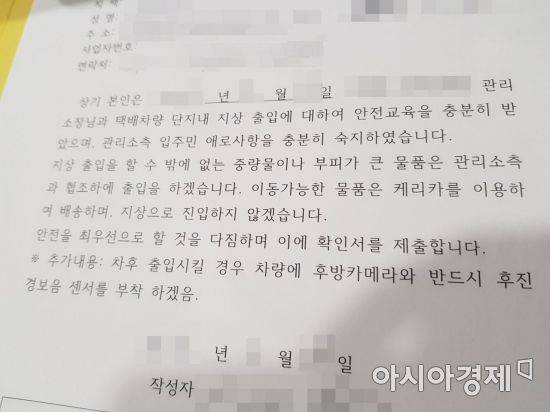 성 명:
주 소:
사업자번호:
연락처:
상기 본인은 년 월 일 관리
소장님과 택배차량 단지내 지상 출입에 대하여 안전교육을 충분히 받
았으며, 관리소측 입주민 애로사항을 충분히 숙지하였습니다.
지상 출입을 할 수 밖에 없는 중량물이나 부피가 큰 물품은 관리소측
과 협조하에 출입을 하겠습니다. 이동가능한 물품은 케리카를 이용하
여 배송하며, 지상으로 진입하지 않겠습니다.
안전을 최우선으로 할 것을 다짐하며 이에 확인서를 제출합니다.
※ 추가내용: 차후 출입시킬 경우 차량에 후방카메라와 반드시 후진
경보음 센서를 부착 하겠음.
년 월 일
작성자
아시아경제